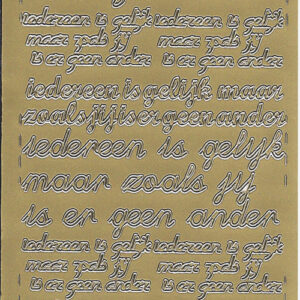 iedereen is gelijk iedereen is gelijk
maar zoals jij maar zoals jij
is er geen ander is er geen ander
iedereen is gelijk maar
zoals jij is er geen ander
iedereen is gelijk
maar zoals jij
is er geen ander
iedereen is gelijk iedereen is gelijk
maar zoals jij maar zoals jij
is er geen ander is er geen ander